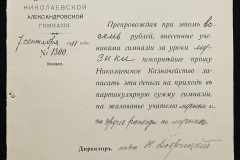 НИКОЛАЕВСКОЙ
АЛЕКСАНДРОВСКОЙ
ГИМНАЗІИ
7 сентября
№ 1300
Препровождая при этомъ во
семь рублей, внесенные уче-
никами гимназіи за уроки му
зыки покорнѣйше прошу
Николаевское Казначейство за-
писать эти деньги на приходъ въ
партикулярную сумму гимназіи,
на жалованье учителю музыки и
на другіе расходы по музыкѣ
Директоръ